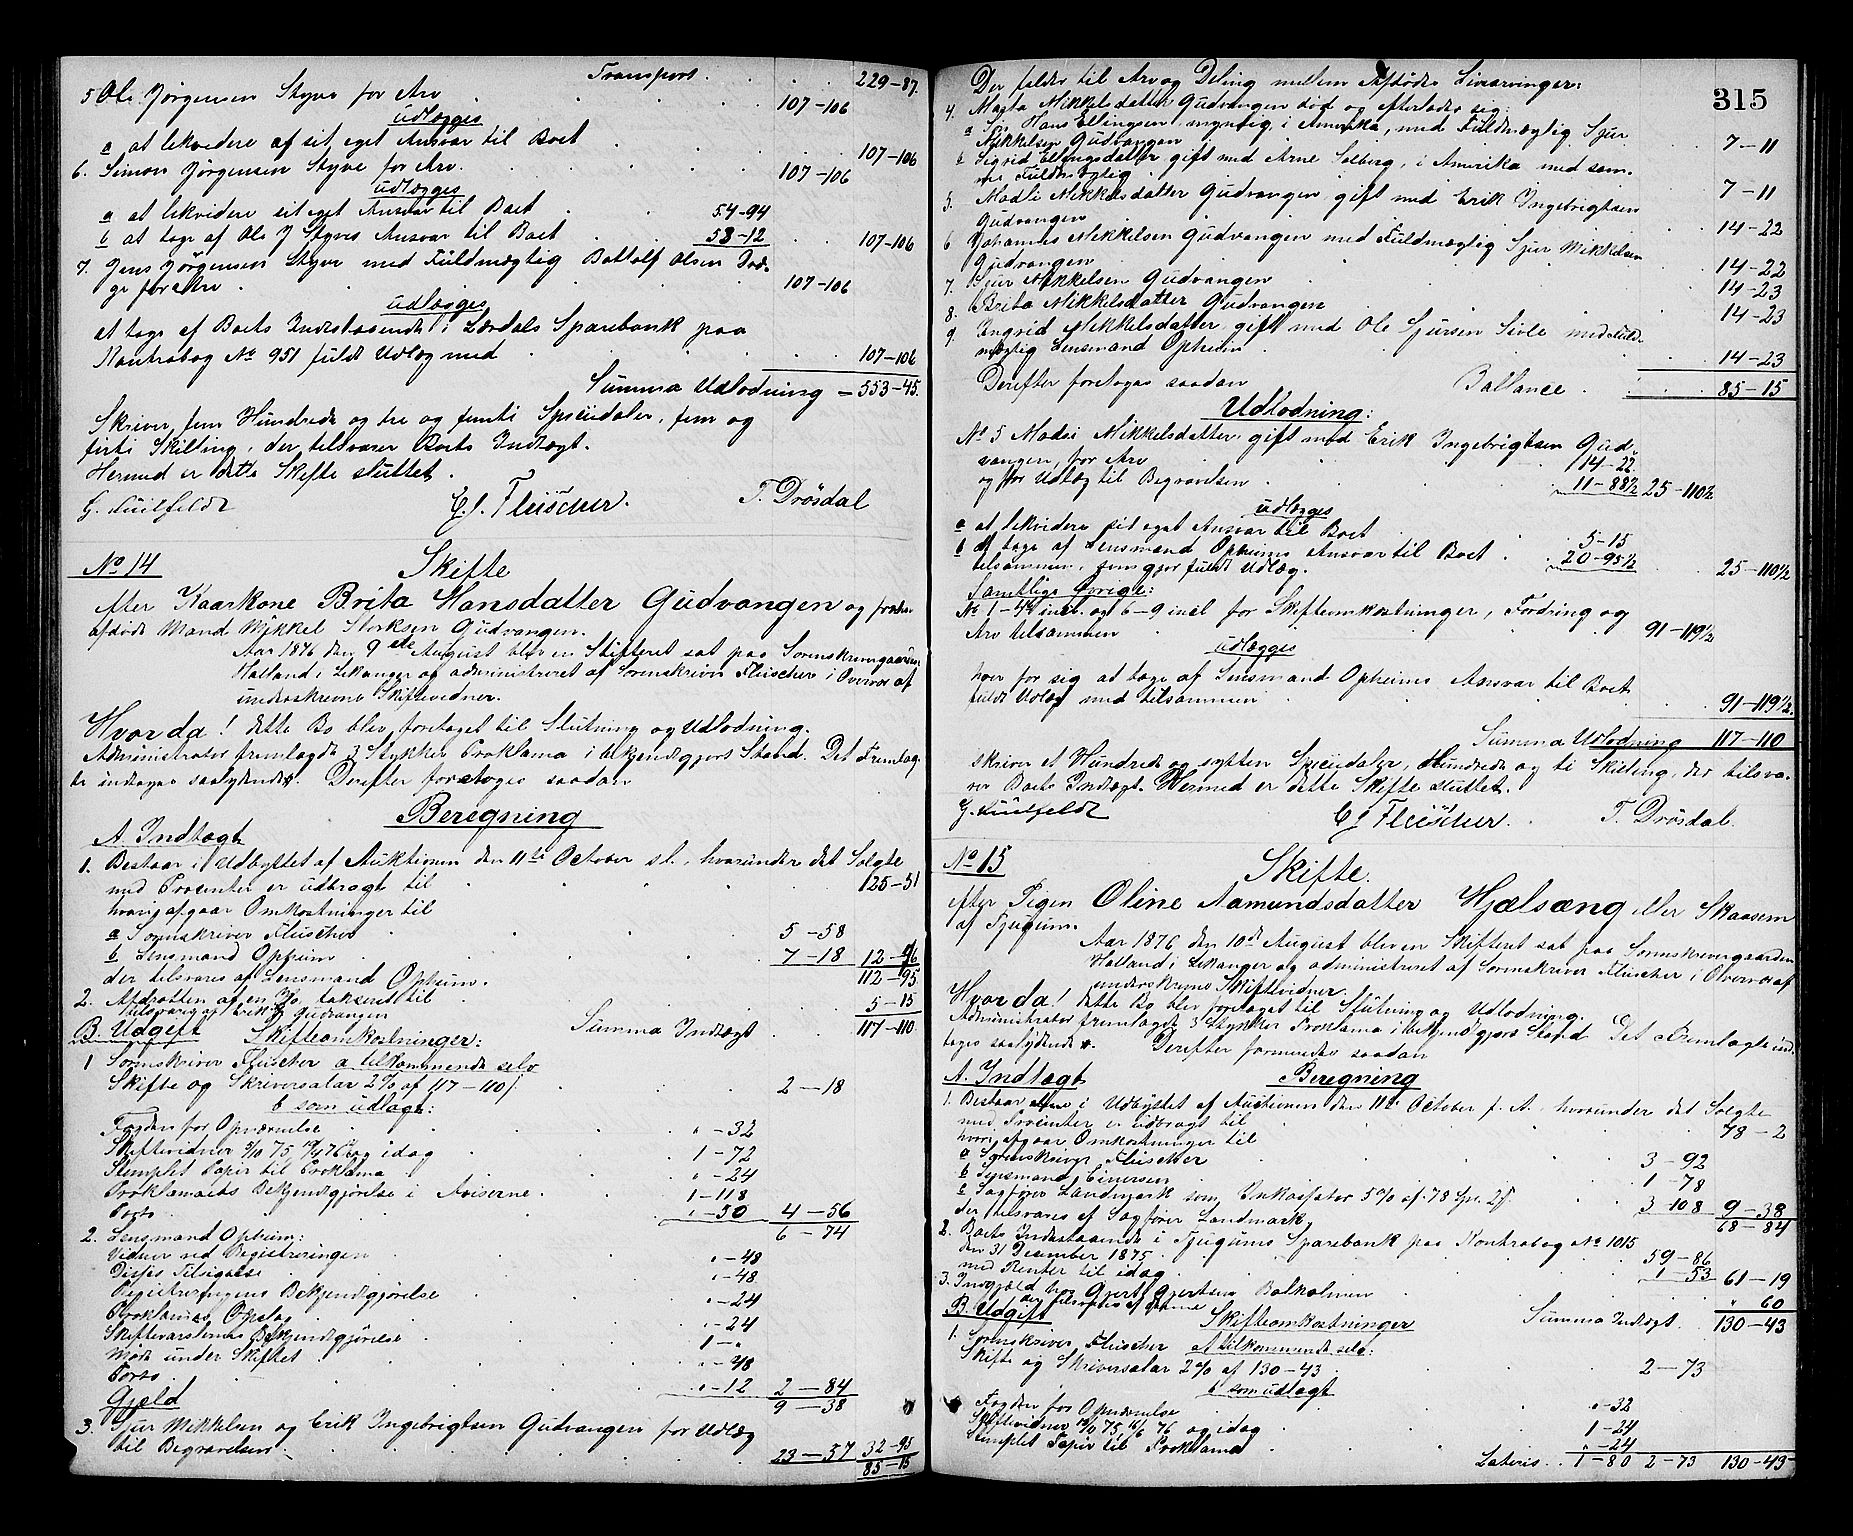 Transport . . . 229-87.
5 Ole Jørgensen Styve for Arv . . . 107-106
udlægges
a at lekvidere af sit eget Ansvar til Boet . . . 107-106
6. Simon Jørgensen Styve for Arv. . . . 107-106
udlægges
a at lekvidere sit eget Ansvar til Boet . . . 54-94
b at tage af Ole J Styves Ansvar til Boet . . . 53-12 . . 107-106
7. Jens Jørgensen Styve med Fuldmægtig Bottolf Olsen
for Arv . . . 107-106
udlægges
at tage af Boets Indestaaende i Lærdals Sparebank paa
Kontrabog No 951 fuldt Udlæg med . . . 107-106
Summa Udlodning - 553-45.
Skriver fem Hundrede og tre og femti Speciedaler, fem og
firti Skilling, der tilsvarer Boets Indtægt.
Hermed er dette Skifte sluttet.
G. Huitfeldt C. J. Fleischer. T. Drøsdal
No 14 Skifte
efter Kaarkone Brita Hansdatter Gudvangen og forhen
afdøde Mand Mikkel Gudvangen.
Aar 1876 den 9de August blev en Skifteret sat paa Sorenskrivergaarden
Halland i Lekanger og administreret af Sorenskriver Fleischer i Overvær af
underskrevne Skiftevidner.
Hvorda! dette Bo blev foretaget til Slutning og Udlodning.
Administrator fremlagde 3 Stykker Proklama i bekjendtgjort Stand. Det Fremlag-
te indtages saalydende. Derefter foretoges saadan
Beregning
A. Indtægt
1. Bestaar i Udbyttet af Auktionen den 11te October sl., hvorunder det Solgte
med Procenter er udbragt til . . . 125-51
hvori afgaar Omkostninger til
a Sorenskriver Fleischer . . . 5-58
b Lensmand Opheim . . . 7-18 12-76
der tilsvares af Lensmand Opheim. 112-95
2. af en Ko, takseret til . . . 5-15
tilsvares af Erik I. Gudvangen
Summa Indtægt . . 117-110
B. Udgift Skifteomkostninger:
1 Sorenskriver Fleischer a tilkommende selv
Skifte og Skriversalær 2% af 117-110/ . . . 2-18
b som udlagt:
Fogden for Opnævnelse . . . "-32
Skiftevidner 5/10 75, 19/4 76 og idag . . . 1-72
Stemplet Papir til Proklama . . . "-24
Proklamaets Bekjendtgjørelse i Aviserne . . . 1-118
Porto . . . "-50 4-56
6-74
2. Lensmand Opheim:
Vidner ved Registreringen . . . "-48
Disses Tilsigelse . . . "-48
Registreringens Bekjendtgjørelse . . . "-24
Proklamas Opslag . . . "-24
Skiftevarslernes Bekjendtgjørelse . . . 1-"
Møde under Skiftet . . . "-48
Porto . . . "-12 2-84
9-38
Gjæld
3. Sjur Mikkelsen og Erik Ingebrigtsen Gudvangen for Udlæg
til Begravelsen . . . 23-57 32-95
85-15
315
Der falder til Arv og Deling mellem Afdødes Livarvinger:
4. Marta Mikkelsdatter Gudvangen død og efterlader sig:
a Søn Hans Ellingsen, myndig, i Amerika, med Fuldmægtig Sjur
Mikkelsen Gudvangen . . . 7-11
b Sigrid Ellingsdatter gift med Arne Solberg, i Amerika med sam-
me Fuldmægtig . . . 7-11
5. Madli Mikkelsdatter Gudvangen gift med Erik Ingebrigtsen
Gudvangen . . . 14-22
6 Johannes Mikkelsen Gudvangen med Fuldmægtig Sjur Mikkelsen
Gudvangen . . . 14-22
7. Sjur Mikkelsen Gudvangen . . . 14-23
8. Brita Mikkelsdatter Gudvangen . . . 14-23
9. Ingrid Mikkelsdatter gift med Ole Sjursen Sivle med Fuld-
mægtig Lensmand Opheim . . . 14-23
Derefter foretoges saadan Ballance . . . 85-15
Udlodning:
No 5 Madli Mikkelsdatter gift med Erik Ingebrigtsen Gud-
vangen, for Arv . . . 14-22
og for Udlæg til Begravelsen . . . 11-88½ 25-110½
udlægges
a at lekvidere sit eget Ansvar til Boet . . . 5-15
b at tage af Lensmand Opheims Ansvar til Boet . . 20-95½
tilsammen, som gjør fuldt Udlæg. . . . 25-110½
Samtlige Øvrige:
No 1-4 incl. og 6-9 incl for Skifteomkostninger, Fordring og
Arv tilsammen . . . 91-119½
udlægges
hver for sig at tage af Lensmand Opheims Ansvar til Boet
fuldt Udlæg med tilsammen . . . 91-119½
Summa Udlodning 117-110
skriver et Hundrede og sytten Speciedaler, Hundrede og ti Skilling, der tilsva-
rer Boets Indtægt. Hermed er dette Skifte sluttet.
G. Huitfeldt C J Fleischer. T. Drøsdal.
No 15 Skifte.
efter Pigen Oline Aamundsdatter Hjælsæng eller Skaasem
af Tjugum.
Aar 1876 den 10de August blev en Skifteret sat paa Sorenskrivergaarden
Halland i Lekanger og administreret af Sorenskriver Fleischer i Overvær af
underskrevne Skiftevidner.
Hvorda! dette Bo blev foretaget til Slutning og Udlodning.
Administrator fremlagde 3 Stykker Proklama i bekjendtgjort Stand Det Fremlagte ind-
tages saalydende. Derefter formeredes saadan
A. Indtægt Beregning
1. Bestaar i Udbyttet af Auctionen den 11te October f. A., hvorunder det Solgte
med Procenter er udbragt til . . . 78-2
hvori afgaar Omkostninger til
a Sorenskriver Fleischer . . . 3-92
b Lensmand Einersen . . . 1-78
c Sagfører Landmark som Inkassator 5% af 78 Spd. 2/ . . . 3-108 9-38
der tilsvares af Sagfører Landmark 68-84
2. Boets Indestaaende i Tjugums Sparebank paa Kontrabog No 1015
den 31 December 1875 . . . 59-86
med Renter til idag . . . 1-53 61-19
3. Indgjæld hos Gjert Gjertsen Balholmen . . . " 60
der tilsvares af denne Summa Indtægt . . 130-43
B. Udgift Skifteomkostninger
1. Sorenskriver Fleischer a tilkommende selv:
Skifte og Skriversalær 2% af 130-43 . . . 2-73
b som udlagt
Fogden for Opnævnelse . . . "-32
Skiftevidner 12/10 75, 16/6 76 og idag . . . 1-24
Stemplet Papir til Proklama . . . "-24
Lateris . . 1-80 2-73 130-43